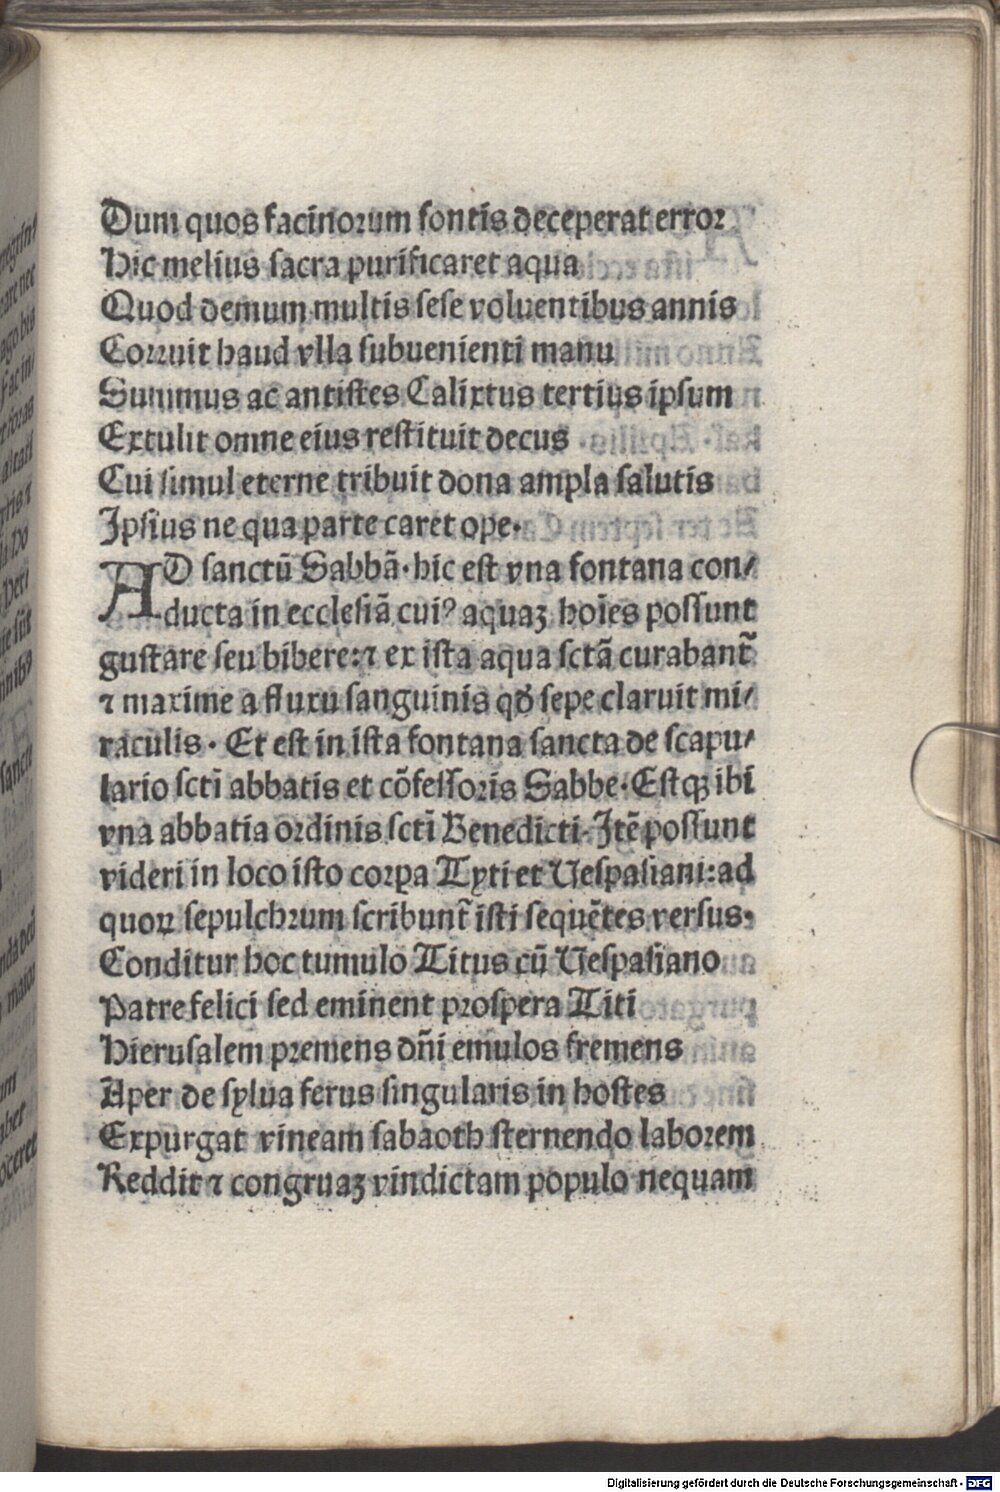 Dum quos facinorum fontis deceperat error
Hic melius sacra purificaret aqua
Quod demum multis sese voluentibus annis
Corruit haud vlla subuenienti manu
Summus ac antistes Calixtus tertius ipsum
Extulit omne eius restituit decus
Cui simul eterne tribuit dona ampla salutis
Ipsius ne qua parte caret ope.
AD sanctū Sabbā. hic est vna fontana con/
ducta in ecclesiā cuiꝰ aquaꝫ hoīes possunt
gustare seu bibere: ⁊ ex ista aqua sctā curabant̄
⁊ maxime a fluxu sanguinis qđ sepe claruit mi/
raculis. Et est in ista fontana sancta de scapu/
lario scti abbatis et cōfessoris Sabbe. Estqꝫ ibi
vna abbatia ordinis scti Benedicti. Itē possunt
videri in loco isto corꝑa Tyti et Vespasiani: ad
quoꝝ sepulchrum scribunt̄ isti sequētes versus.
Conditur hoc tumulo Titus cū Vespasiano
Patre felici sed eminent prospera Titi
Hierusalem premens dn̄i emulos fremens
Aper de sylua ferus singularis in hostes
Expurgat vineam sabaoth sternendo laborem
Reddit ⁊ congruaꝫ vindictam populo nequam
Digitalisierung gefördert durch die Deutsche Forschungsgemeinschaft - DFG